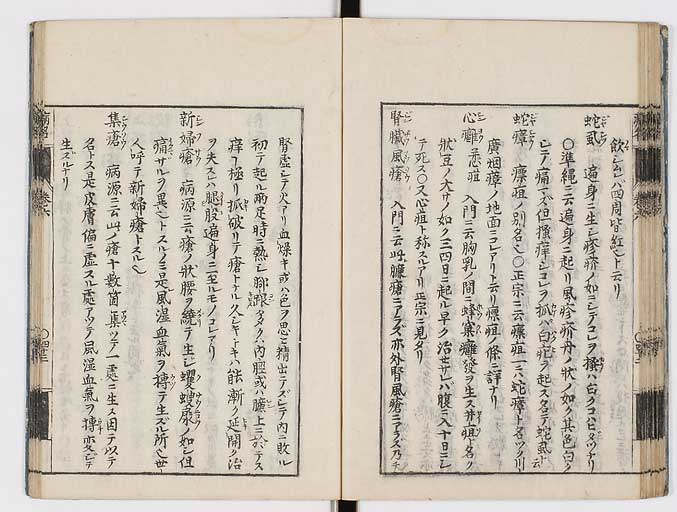 飲シ色ハ四周皆紅シト云リ
蛇虱 遍身ニ生シ疹疥ノ如ニシテコレヲ搔ハ白クコハビダツナリ
○準縄ニ云遍身ニ起リ風疹疥丹ノ状ノ如ク其色白ク
シテ痛マズ但搔痒シコレヲ抓ハ白疕ヲ起ス名テ蛇虱ト云
蛇瘴 瘭疽ノ別名也○正宗ニ云瘭疽一ニ蛇瘴ト名ツク川
廣烟瘴ノ地面ニコレアリト云リ瘭疽ノ條ニ詳ナリ
心癰 入門ニ云胸乳ノ間ニ蜂窠癰發ヲ生ス井疽ト名ク
状豆ノ大サノ如ク三四日ニ起ル早ク治セサレハ腹ニ入十日ニシ
テ死ス○又心疽ト称スアリ正宗ニ見タリ
腎臓風瘡 入門ニ云此臁瘡ニアラズ亦外腎風瘡ニアラス乃チ
腎虚シテ火アリ血燥キ或ハ色ヲ思ヒ精出テズシテ内ニ敗ル
初テ起ル両足時ニ熱シ脚跟 内踁或ハ臁上ニ於テス
痒ヿ極リ抓破リテ瘡トナル久シキトキハ能漸ク延開ク治
ヲ失スレハ腿股遍身ニ至ルモノコレアリ
新婦瘡 病源ニ云瘡ノ状腰ヲ繞テ生シ蠼螋尿ノ如シ但
痛サルヲ異トスルノミ是風湿血氣ヲ搏テ生スル所也世
人呼テ新婦瘡トスル也
集瘡 病源ニ云此ノ瘡十數箇集ツテ一處ニ生ス因テ以テ
名トス是皮膚偏ニ虚スル處アツテ風湿血氣ヲ搏変シテ
生ズルナリ